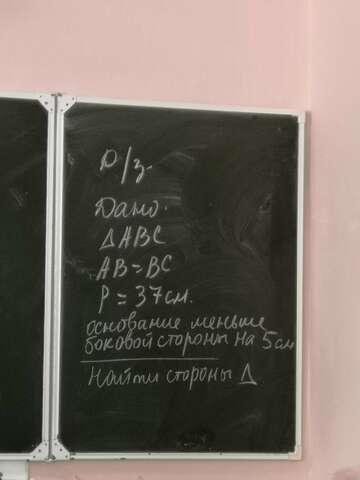 Д/з.
Дано.
ΔABC
AB=BC
P = 37см.
основание меньше
боковой стороны на 5см
Найти стороны Δ